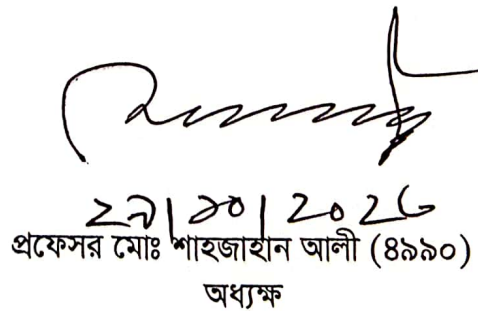 ২৯|১০|২০২৫
প্রফেসর মোঃ শাহজাহান আলী (৪৯৯০)
অধ্যক্ষ